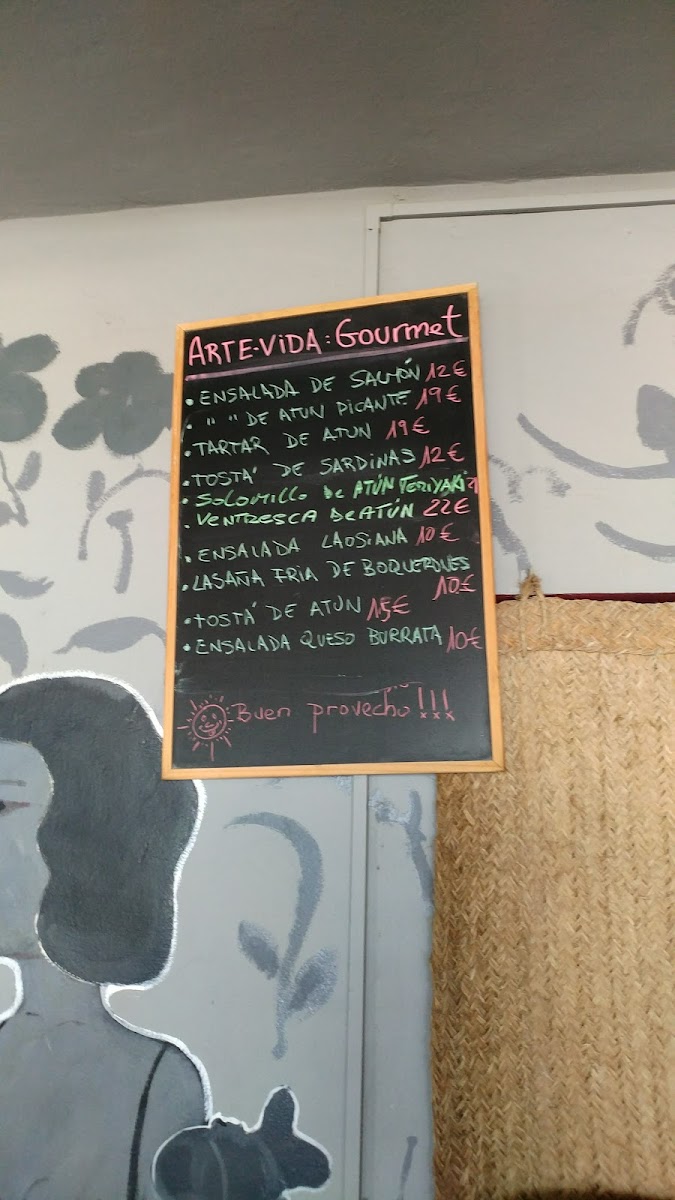 ARTE-VIDA: Gourmet
• ENSALADA DE SALMÓN 12€
• " " DE ATUN PICANTE 19€
• TARTAR DE ATUN 19€
• TOSTA' DE SARDINAS 12€
• SOLOMILLO De ATÚN TERIYAKI
• VENTRESCA De ATÚN 22€
• ENSALADA LAOSIANA 10€
• LASAÑA FRIA DE BOQUERONES
10€
• TOSTA' DE ATUN 15€
• ENSALADA QUESO BURRATA 10€
Buen provecho!!!